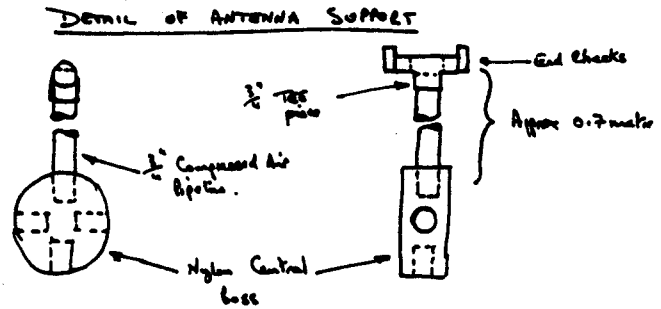 DETAIL OF ANTENNA SUPPORT
End Cheeks
3/4" TEE
piece
Approx 0.7 metre
3/4" Compressed Air
Pipeline.
Nylon Central
boss